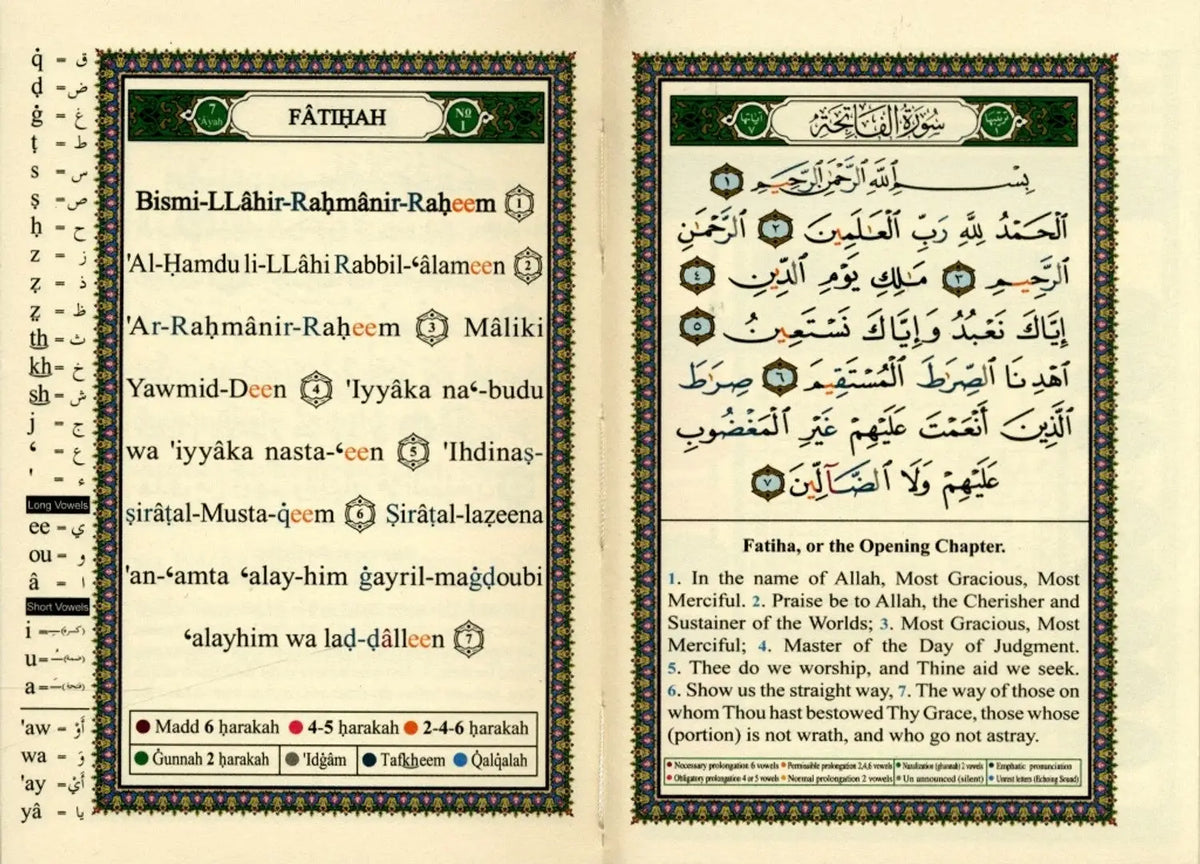 q̇ = ق
ḍ = ض
ġ = غ
ṭ = ط
s = س
ṣ = ص
ḥ = ح
z = ز
ẓ = ذ
ẓ = ظ
th = ث
kh = خ
sh = ش
j = ج
‘ = ع
' = ء
Long Vowels
ee = ي
ou = و
â = ا
Short Vowels
i = (كسرة)
u = (ضمة)
a = (فتحة)
'aw = أَوْ
wa = وَ
'ay = أَيْ
yâ = يا
7 'Âyah
FÂTIḤAH
№ 1
Bismi-LLâhir-Raḥmânir-Raḥeem 1
'Al-Ḥamdu li-LLâhi Rabbil-‘âlameen 2
'Ar-Raḥmânir-Raḥeem 3 Mâliki
Yawmid-Deen 4 'Iyyâka na‘-budu
wa 'iyyâka nasta-‘een 5 'Ihdinaṣ-
ṣirâṭal-Musta-q̇eem 6 Ṣirâṭal-laẓeena
'an-‘amta ‘alay-him ġayril-maġḍoubi
‘alayhim wa laḍ-ḍâlleen 7
Madd 6 ḥarakah 4-5 ḥarakah 2-4-6 ḥarakah
Ġunnah 2 ḥarakah 'Idġâm Tafkheem Q̇alq̇alah
ترتيبها ١
سُورَةُ الفَاتِحَة
آياتها ٧
بِسْمِ ٱللَّهِ ٱلرَّحْمَٰنِ ٱلرَّحِيمِ ١
ٱلْحَمْدُ لِلَّهِ رَبِّ ٱلْعَٰلَمِينَ ٢ ٱلرَّحْمَٰنِ
ٱلرَّحِيمِ ٣ مَٰلِكِ يَوْمِ ٱلدِّينِ ٤
إِيَّاكَ نَعْبُدُ وَإِيَّاكَ نَسْتَعِينُ ٥
ٱهْدِنَا ٱلصِّرَٰطَ ٱلْمُسْتَقِيمَ ٦ صِرَٰطَ
ٱلَّذِينَ أَنْعَمْتَ عَلَيْهِمْ غَيْرِ ٱلْمَغْضُوبِ
عَلَيْهِمْ وَلَا ٱلضَّآلِّينَ ٧
Fatiha, or the Opening Chapter.
1. In the name of Allah, Most Gracious, Most
Merciful. 2. Praise be to Allah, the Cherisher and
Sustainer of the Worlds; 3. Most Gracious, Most
Merciful; 4. Master of the Day of Judgment.
5. Thee do we worship, and Thine aid we seek.
6. Show us the straight way, 7. The way of those on
whom Thou hast bestowed Thy Grace, those whose
(portion) is not wrath, and who go not astray.
Necessary prolongation 6 vowels Permissible prolongation 2,4,6 vowels Nazalization (ghunnah) 2 vowels Emphatic pronunciation
Obligatory prolongation 4 or 5 vowels Normal prolongation 2 vowels Un announced (silent) Unrest letters (Echoing Sound)